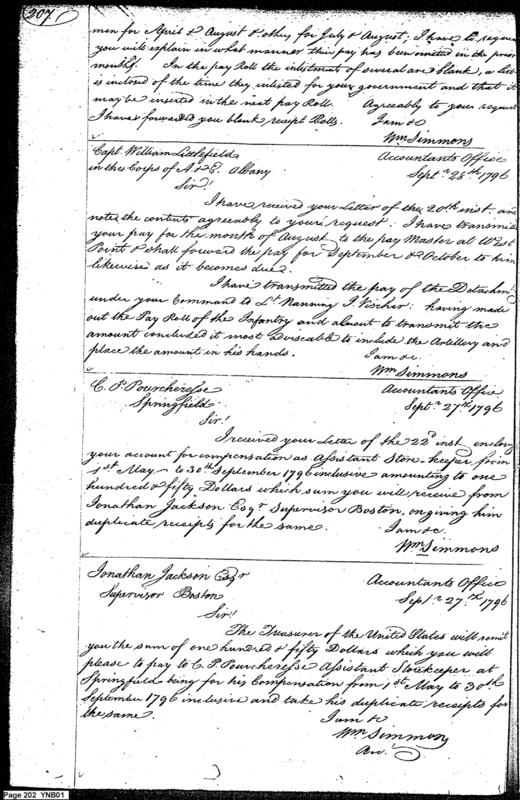 207.
men for April & August & others for July & August: I have to request
you will explain in what manner their pay has been omitted in the prior
months. In the pay Roll the inlistment of several are blank, a list
is inclosed of the time they inlisted for your government and that it
may be inserted in the next pay Roll. Agreeably to your request
I have forwarded you blank receipt Rolls. I am &c
Wm Simmons
Capt. William Littlefield Accountants Office
in the Corps of A. & E. Albany Septr 28th 1796
Sir!
I have received your Letter of the 20th inst. and
note the contents agreeably to your request: I have transmitted
your pay for the month of August to the pay Master at West
Point & shall forward the pay for September & October to him
likewise as it becomes due.
I have transmitted the pay of the Detachmt
under your Command to Lt. Nanning J. Vischer: having made
out the Pay Roll of the Infantry and about to transmit the
amount concluded it most adviseable to include the Artillery and
place the amount in his hands. I am &c.
Wm Simmons
C. P. Pourcheresse Accountants Office
Springfield Septr 27th 1796
Sir!
I received your Letter of the 22d inst. enclosg
your account for compensation as Assistant Store keeper from
1st May to 30th September 1796 inclusive amounting to one
hundred & fifty Dollars which sum you will receive from
Jonathan Jackson Esqr Supervisor Boston, on giving him
duplicate receipts for the same. I am &c.
Wm Simmons
Jonathan Jackson Esqr Accountants Office
Supervisor Boston Septr 27th 1796
Sir!
The Treasurer of the United States will remit
you the sum of one hundred & fifty Dollars which you will
please to pay to C. P. Pourcheresse Assistant Storekeeper at
Springfield being for his Compensation from 1st May to 30th
September 1796 inclusive and take his duplicate receipts for
the same. I am &c
Wm Simmons
Acct.
Page 202 YNB01